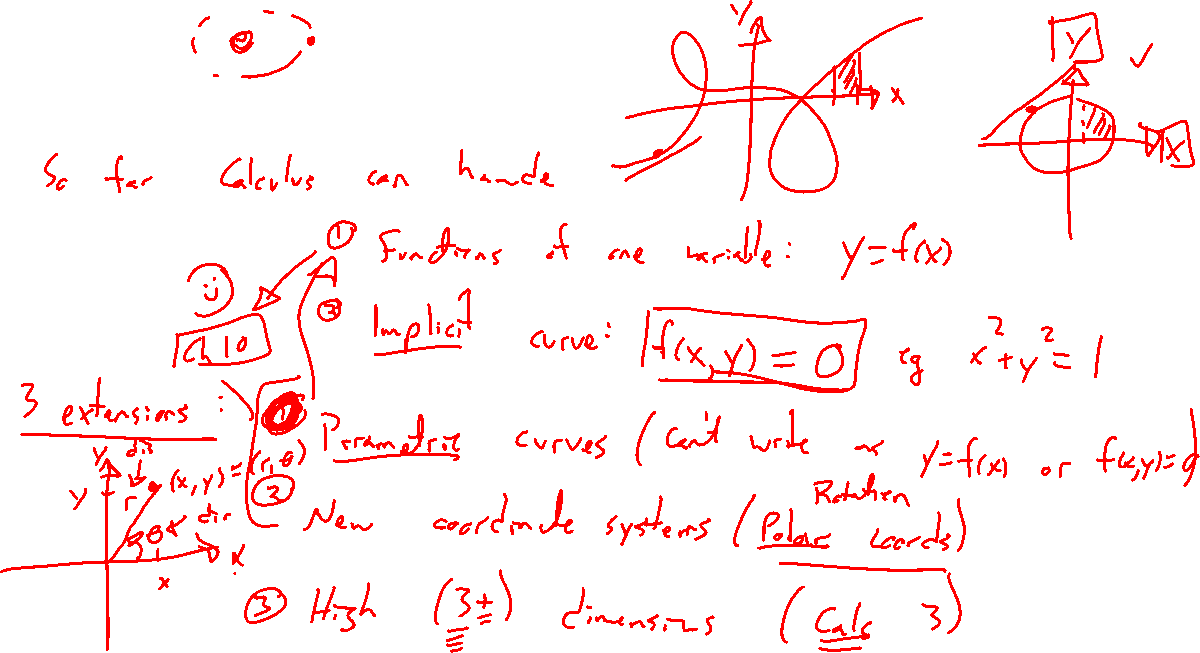 y
x
y
x
So far Calculus can handle
① Functions of one variable: y=f(x)
② Implicit curve: f(x,y) = 0 eg x²+y²=1
Ch 10
3 extensions:
① Parametric curves (Can't write as y=f(x) or f(x,y)=0)
② New coordinate systems (Polar coords)
Rotation
③ High (3+) dimensions (Calc 3)
y
dis
y r (x,y)=(r,θ)
θ dir
x
x